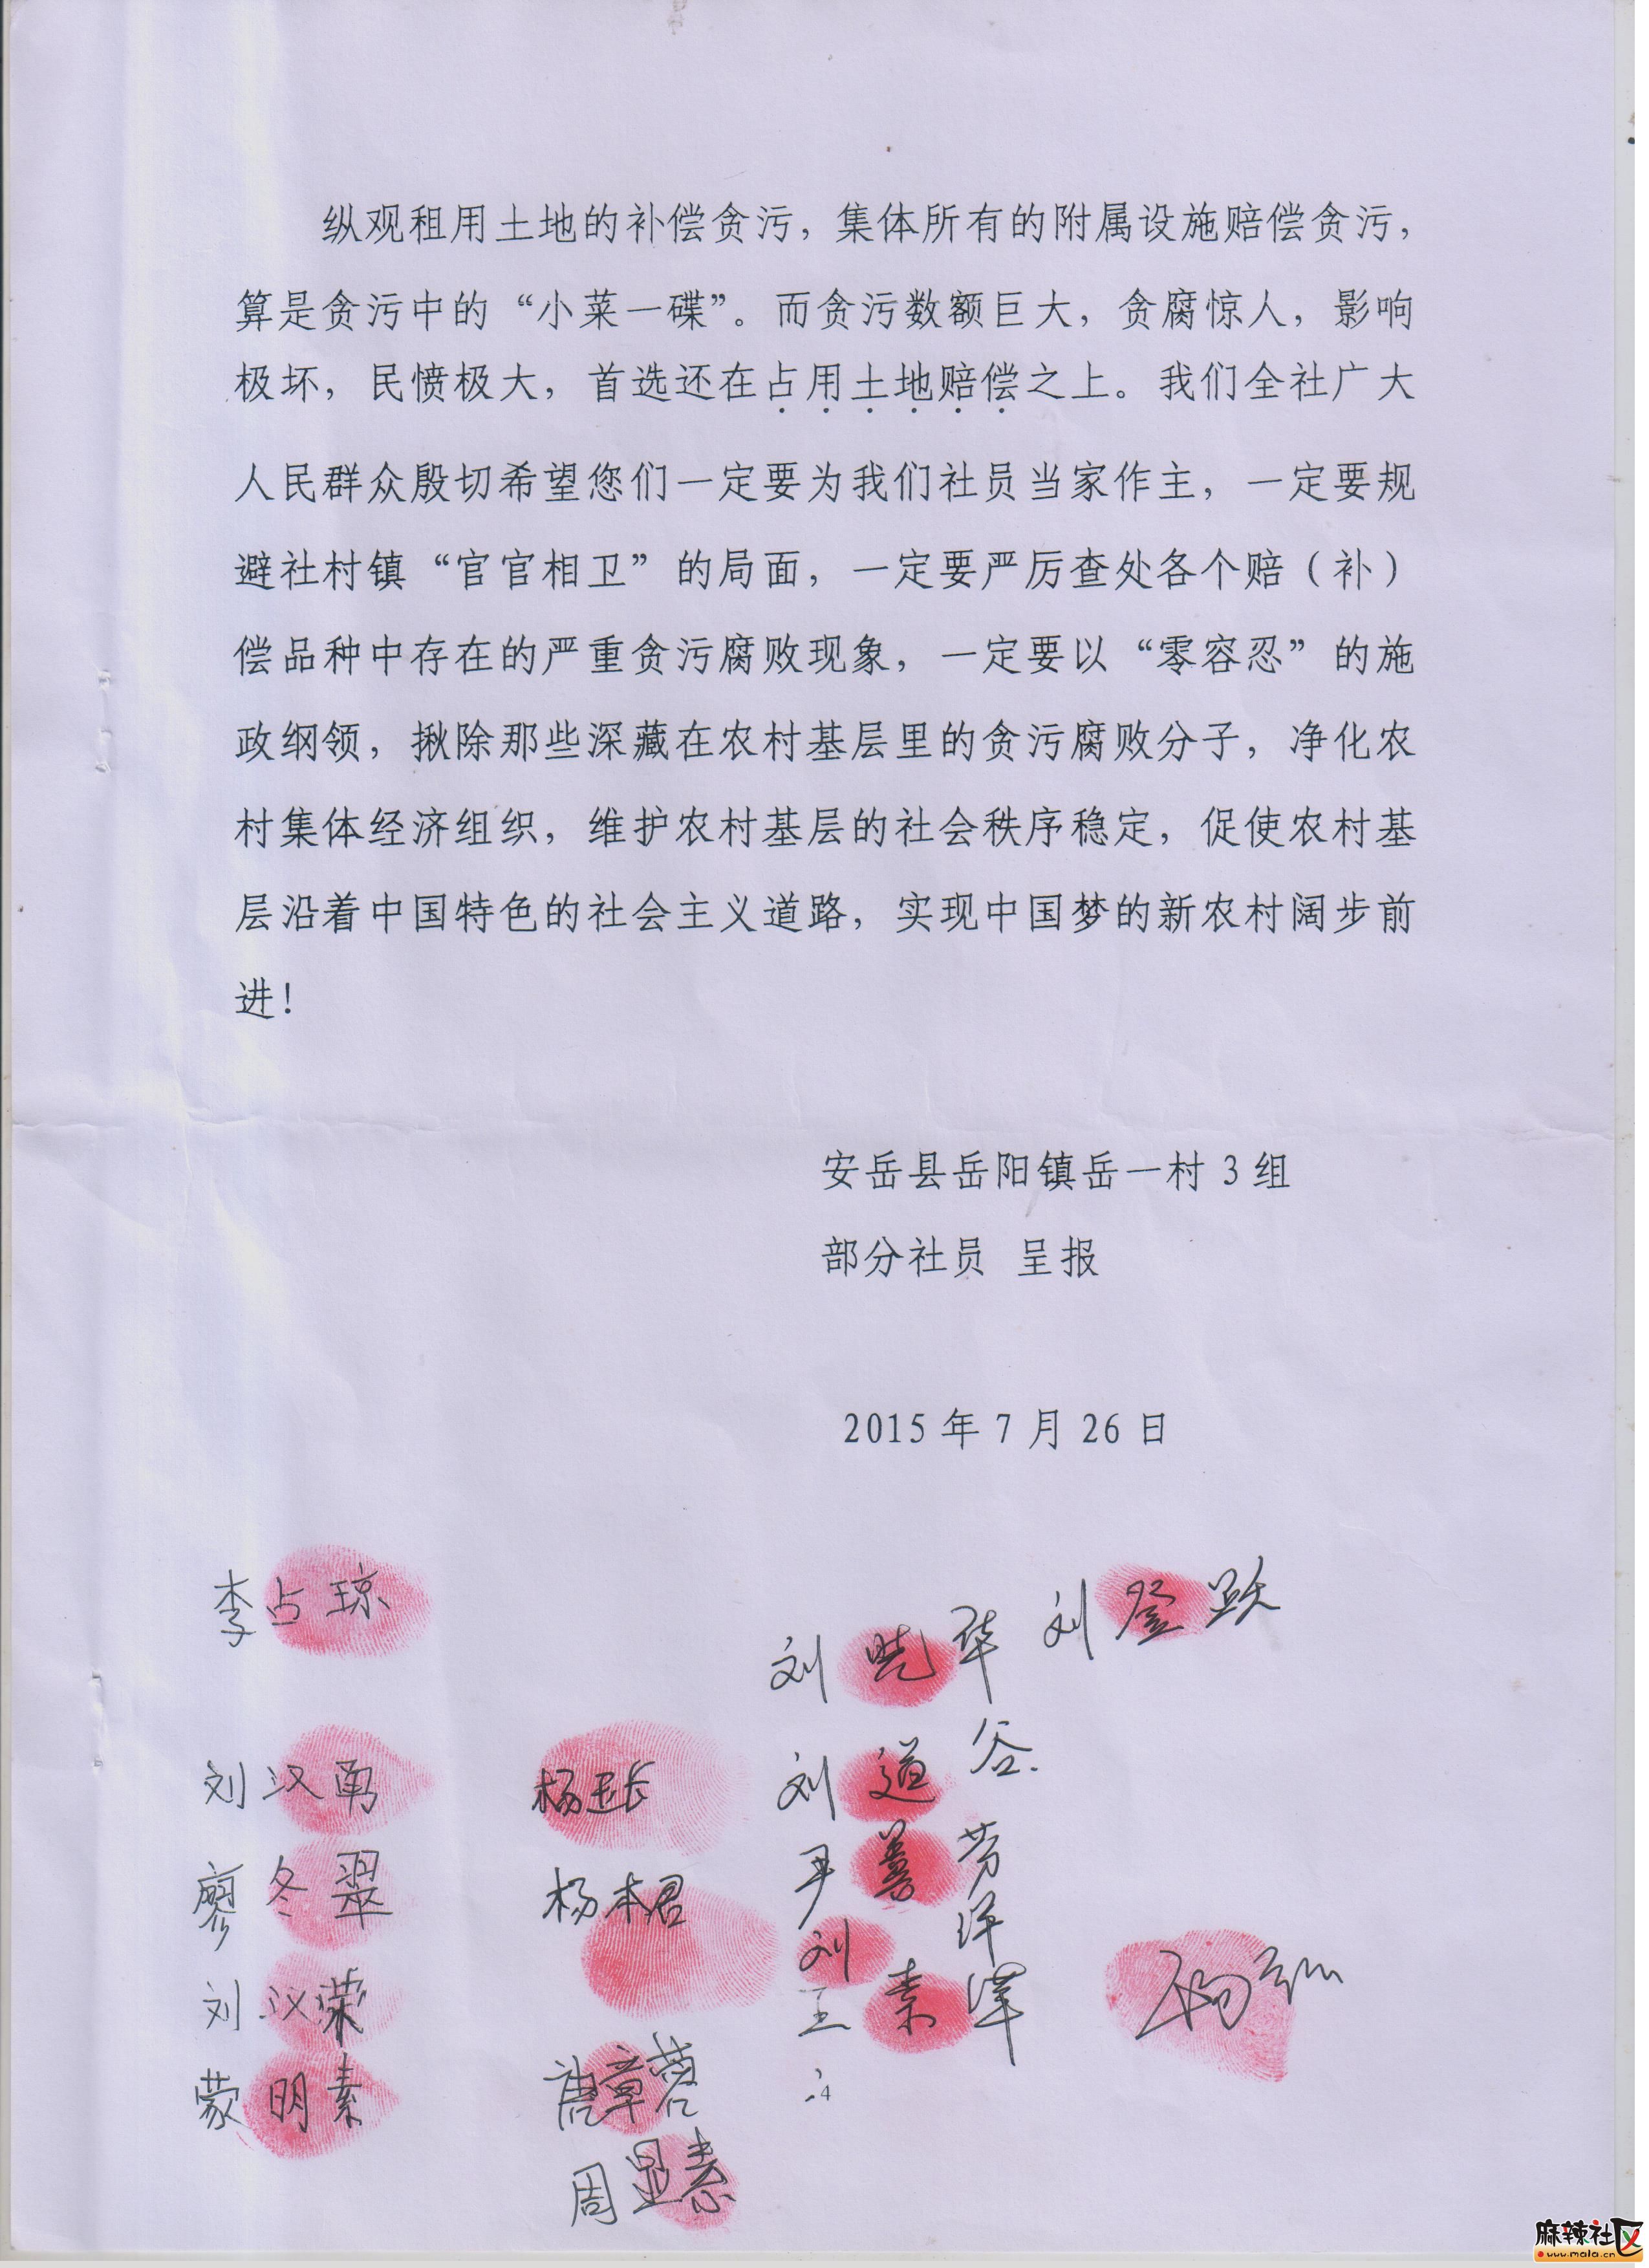 纵观租用土地的补偿贪污，集体所有的附属设施赔偿贪污，
算是贪污中的“小菜一碟”。而贪污数额巨大，贪腐惊人，影响
极坏，民愤极大，首选还在占用土地赔偿之上。我们全社广大
人民群众殷切希望您们一定要为我们社员当家作主，一定要规
避社村镇“官官相卫”的局面，一定要严厉查处各个赔（补）
偿品种中存在的严重贪污腐败现象，一定要以“零容忍”的施
政纲领，揪除那些深藏在农村基层里的贪污腐败分子，净化农
村集体经济组织，维护农村基层的社会秩序稳定，促使农村基
层沿着中国特色的社会主义道路，实现中国梦的新农村阔步前
进！
安岳县岳阳镇岳一村 3 组
部分社员 呈报
2015 年 7 月 26 日
李占琼
刘登跃
刘晓华
刘汉勇
刘道谷
廖冬翠
杨本君
尹善芳
刘洋
刘汉荣
王素
蒙明素
唐章蓉
周显素
4
麻辣社区
www.mala.cn